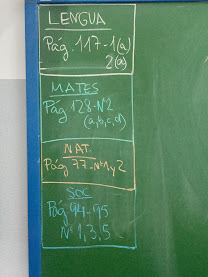 LENGUA
Pág. 117-1(a)
2(a)
MATES
Pág 128-Nº2
(a,b,c,d)
NAT.
Pág 77-Nº1 y 2
SOC
Pág 94-95
Nº 1,3,5